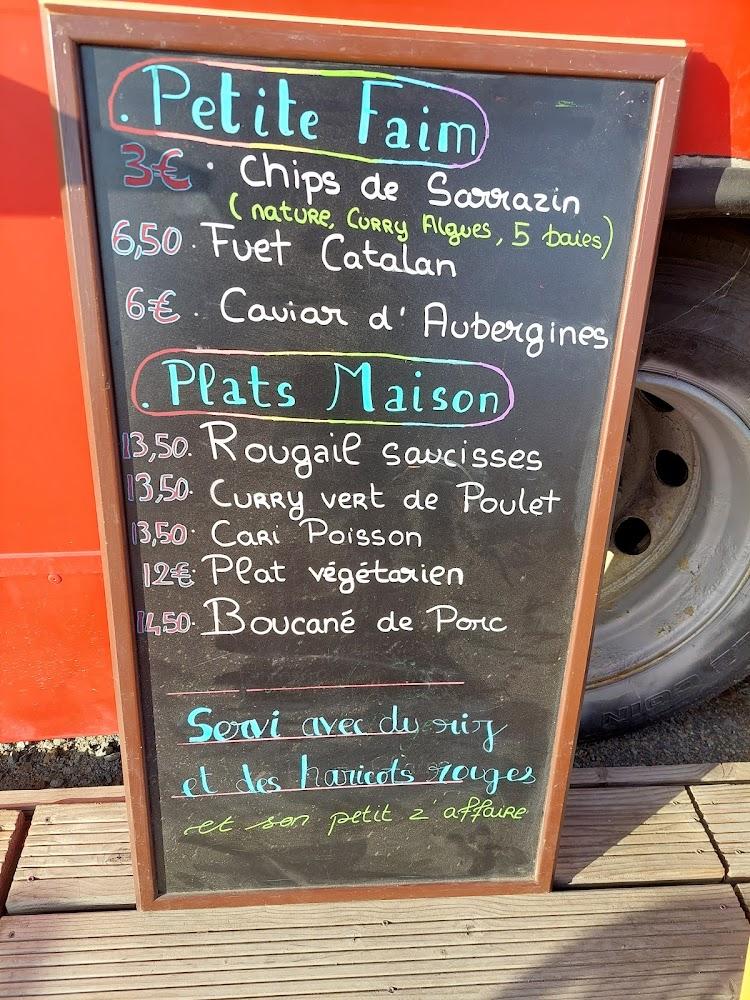 . Petite Faim
3€ . Chips de Sarrazin
(nature, CURRY Algues, 5 baies)
6,50 . Fuet Catalan
6€ . Caviar d' Aubergines
. Plats Maison
13,50. Rougail saucisses
13,50. CURRY VERT de Poulet
13,50. CaRi Poisson
12€. Plat végétarien
14,50. Boucané de Porc
Servi avec du riz
et des haricots rouges
et son petit z'affaire